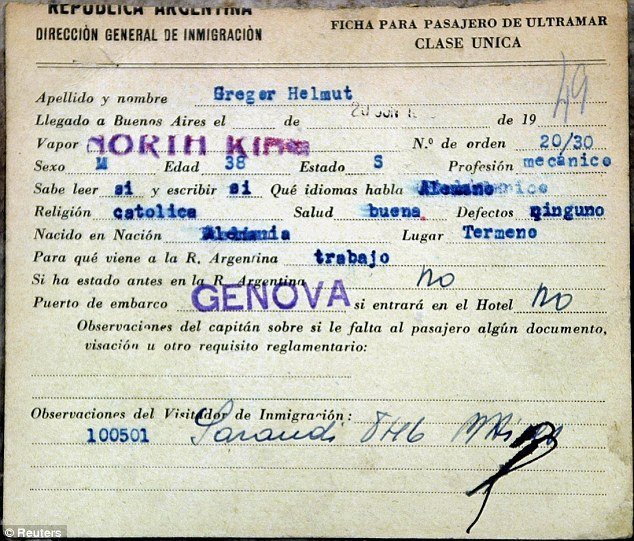 REPÚBLICA ARGENTINA
DIRECCIÓN GENERAL DE INMIGRACIÓN
FICHA PARA PASAJERO DE ULTRAMAR
CLASE UNICA
49
Apellido y nombre Greger Helmut
Llegado a Buenos Aires el de 20 JUN de 19
Vapor NORTH KING N.º de orden 20/30
Sexo M Edad 38 Estado S Profesión mecánico
Sabe leer si y escribir si Qué idiomas habla Alemano
Religión catolica Salud buena Defectos ninguno
Nacido en Nación Alemania Lugar Termeno
Para qué viene a la R. Argentina trabajo
Si ha estado antes en la R. Argentina no
Puerto de embarco GENOVA si entrará en el Hotel no
Observaciones del capitán sobre si le falta al pasajero algún documento,
visación u otro requisito reglamentario:
Observaciones del Visitador de Inmigración:
100501 Sarandi
© Reuters